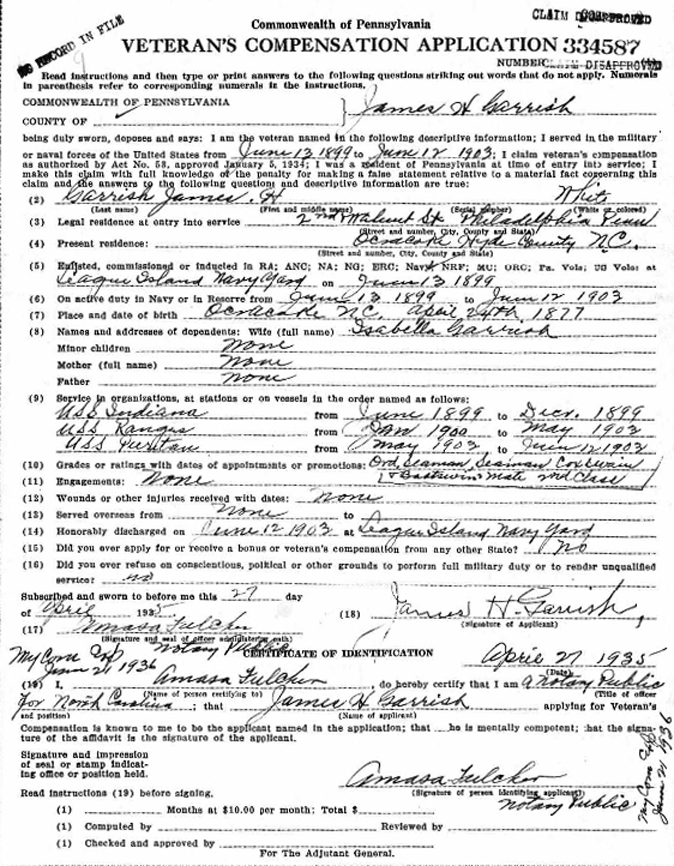 NO RECORD IN FILE
CLAIM DISAPPROVED
Commonwealth of Pennsylvania
VETERAN'S COMPENSATION APPLICATION 334587
NUMBER CLAIM DISAPPROVED
Read instructions and then type or print answers to the following questions striking out words that do not apply. Numerals
in parenthesis refer to corresponding numerals in the instructions.
COMMONWEALTH OF PENNSYLVANIA
COUNTY OF } James H Garrish
being duly sworn, deposes and says: I am the veteran named in the following descriptive information; I served in the military
or naval forces of the United States from June 13 1899 to June 12 1903; I claim veteran's compensation
as authorized by Act No. 53, approved January 5, 1934; I was a resident of Pennsylvania at time of entry into service; I
make this claim with full knowledge of the penalty for making a false statement relative to a material fact concerning this
claim and the answers to the following questions and descriptive information are true:
(2) Garrish James. H White
(Last name) (First and middle name) (Serial number) (White or colored)
(3) Legal residence at entry into service 2nd & Walnut St Philadelphia Penn
(Street and number, City, County and State)
(4) Present residence: Ocracoke Hyde County N.C.
(Street and number, City, County and State)
(5) Enlisted, commissioned or inducted in RA; ANC; NA; NG; ERC; Navy; NRF; MC; ORC; Pa. Vols; US Vols: at
League Island Navy Yard on June 13 1899
(6) On active duty in Navy or in Reserve from June 13 1899 to June 12 1903
(7) Place and date of birth Ocracoke N.C. April 24th 1877
(8) Names and addresses of dependents: Wife (full name) Isabella Garrish
Minor children None
Mother (full name) None
Father None
(9) Service in organizations, at stations or on vessels in the order named as follows:
USS Indiana from June 1899 to Decr. 1899
USS Ranger from Jan 1900 to May 1903
USS Puritan from May 1903 to June 12 1903
(10) Grades or ratings with dates of appointments or promotions: Ord, Seaman, Seaman Coxswain
(11) Engagements: None & Boatswin's Mate 2nd Class
(12) Wounds or other injuries received with dates: None
(13) Served overseas from None to
(14) Honorably discharged on June 12 1903 at League Island Navy Yard
(15) Did you ever apply for or receive a bonus or veteran's compensation from any other State? No
(16) Did you ever refuse on conscientious, political or other grounds to perform full military duty or to render unqualified
service? no
Subscribed and sworn to before me this 27 day
of April 1935 (18) James H. Garrish,
(Signature of Applicant)
(17) Amasa Fulcher
(Signature and seal of officer administering oath)
Notary Public
My Com Exp
June 21 1936
CERTIFICATE OF IDENTIFICATION April 27 1935
(Date)
(19) I, Amasa Fulcher do hereby certify that I am a Notary Public
(Name of person certifying to) (Title of officer
For North Carolina; that James H Garrish applying for Veteran's
and position) (Name of applicant)
Compensation is known to me to be the applicant named in the application; that he is mentally competent; that the signa-
ture of the affidavit is the signature of the applicant.
Signature and impression
of seal or stamp indicat-
ing office or position held.
Amasa Fulcher
(Signature of person identifying applicant)
Notary Public
My Com Exp
June 21 1936
Read instructions (19) before signing.
(1) Months at $10.00 per month: Total $
(1) Computed by Reviewed by
(1) Checked and approved by
For The Adjutant General.